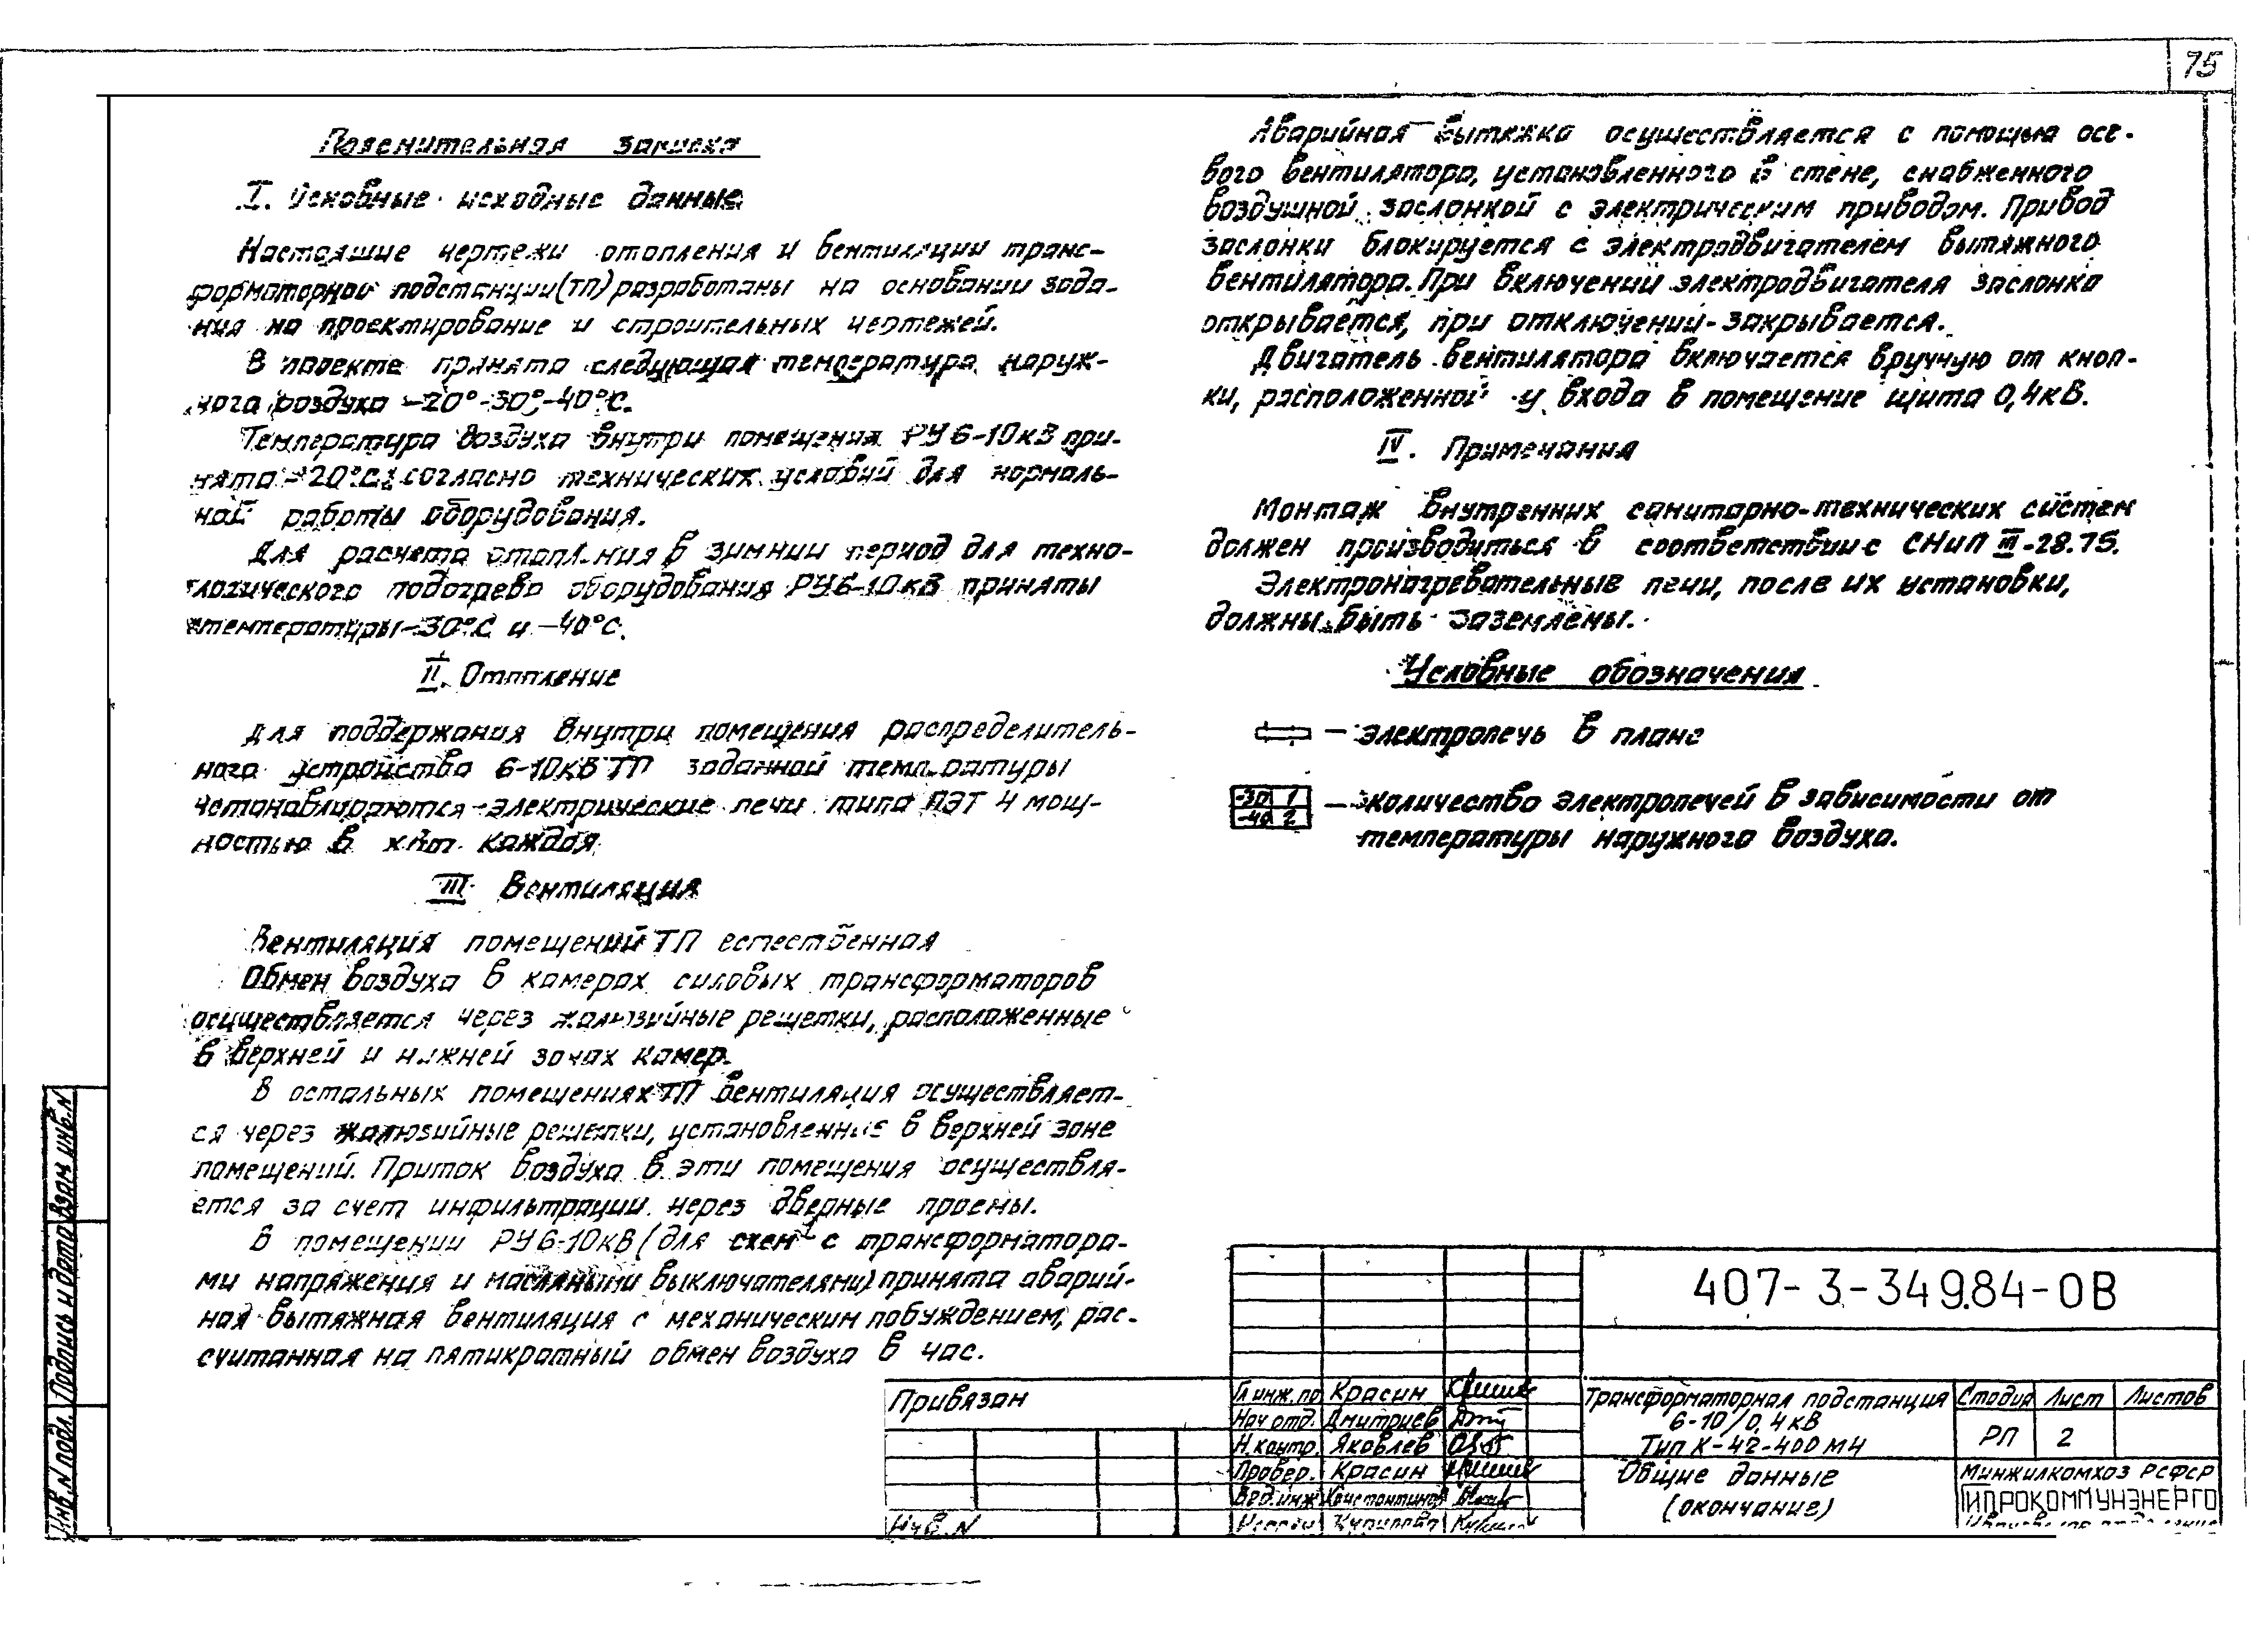 75
Пояснительная записка
I. Основные исходные данные
Настоящие чертежи отопления и вентиляции транс-
форматорной подстанции(ТП) разработаны на основании зада-
ния на проектирование и строительных чертежей.
В проекте принята следующая температура наруж-
ного воздуха -20°-30°,-40°С.
Температура воздуха внутри помещения РУ6-10кВ при-
нята -20°С согласно технических условий для нормаль-
ной работы оборудования.
Для расчета отопления в зимний период для техно-
логического подогрева оборудования РУ6-10кВ приняты
температуры-30°С и -40°С.
II. Отопление
Для поддержания внутри помещения распределитель-
ного устройства 6-10кВ ТП заданной температуры
устанавливаются электрические печи типа ПЭТ 4 мощ-
ностью в кВт каждая.
III Вентиляция
Вентиляция помещений ТП естественная
Обмен воздуха в камерах силовых трансформаторов
осуществляется через жалюзийные решетки, расположенные
в верхней и нижней зонах камер.
В остальных помещениях ТП вентиляция осуществляет-
ся через жалюзийные решетки, установленные в верхней зоне
помещений. Приток воздуха в эти помещения осуществля-
ется за счет инфильтрации через дверные проемы.
В помещении РУ6-10кВ (для схем с трансформатора-
ми напряжения и масляными выключателями) принята аварий-
ная вытяжная вентиляция с механическим побуждением, рас-
считанная на пятикратный обмен воздуха в час.
Аварийная вытяжка осуществляется с помощью осе-
вого вентилятора, установленного в стене, снабженного
воздушной заслонкой с электрическим приводом. Привод
заслонки блокируется с электродвигателем вытяжного
вентилятора. При включении электродвигателя заслонка
открывается, при отключении-закрывается.
Двигатель вентилятора включается вручную от кноп-
ки, расположенной у входа в помещение щита 0,4кВ.
IV. Примечания
Монтаж внутренних санитарно-технических систем
должен производиться в соответствии с СНиП III-28.75.
Электронагревательные печи, после их установки,
должны быть заземлены.
Условные обозначения
- электропечь в плане
-30 1
-40 2
- количество электропечей в зависимости от
температуры наружного воздуха.
Взам инв.N
Подпись и дата
Инв N подл.
Привязан
Инв.N
Гл инж. пр Красин
Нач отд. Дмитриев
Н.контр. Яковлев
Провер. Красин
Вед.инж Константинов
407-3-349.84-ОВ
Трансформаторная подстанция
6-10/0,4кВ
Тип К-42-400М4
Стадия Лист Листов
РП 2
Общие данные
(окончание)
Минжилкомхоз РСФСР
ГИПРОКОММУНЭНЕРГО